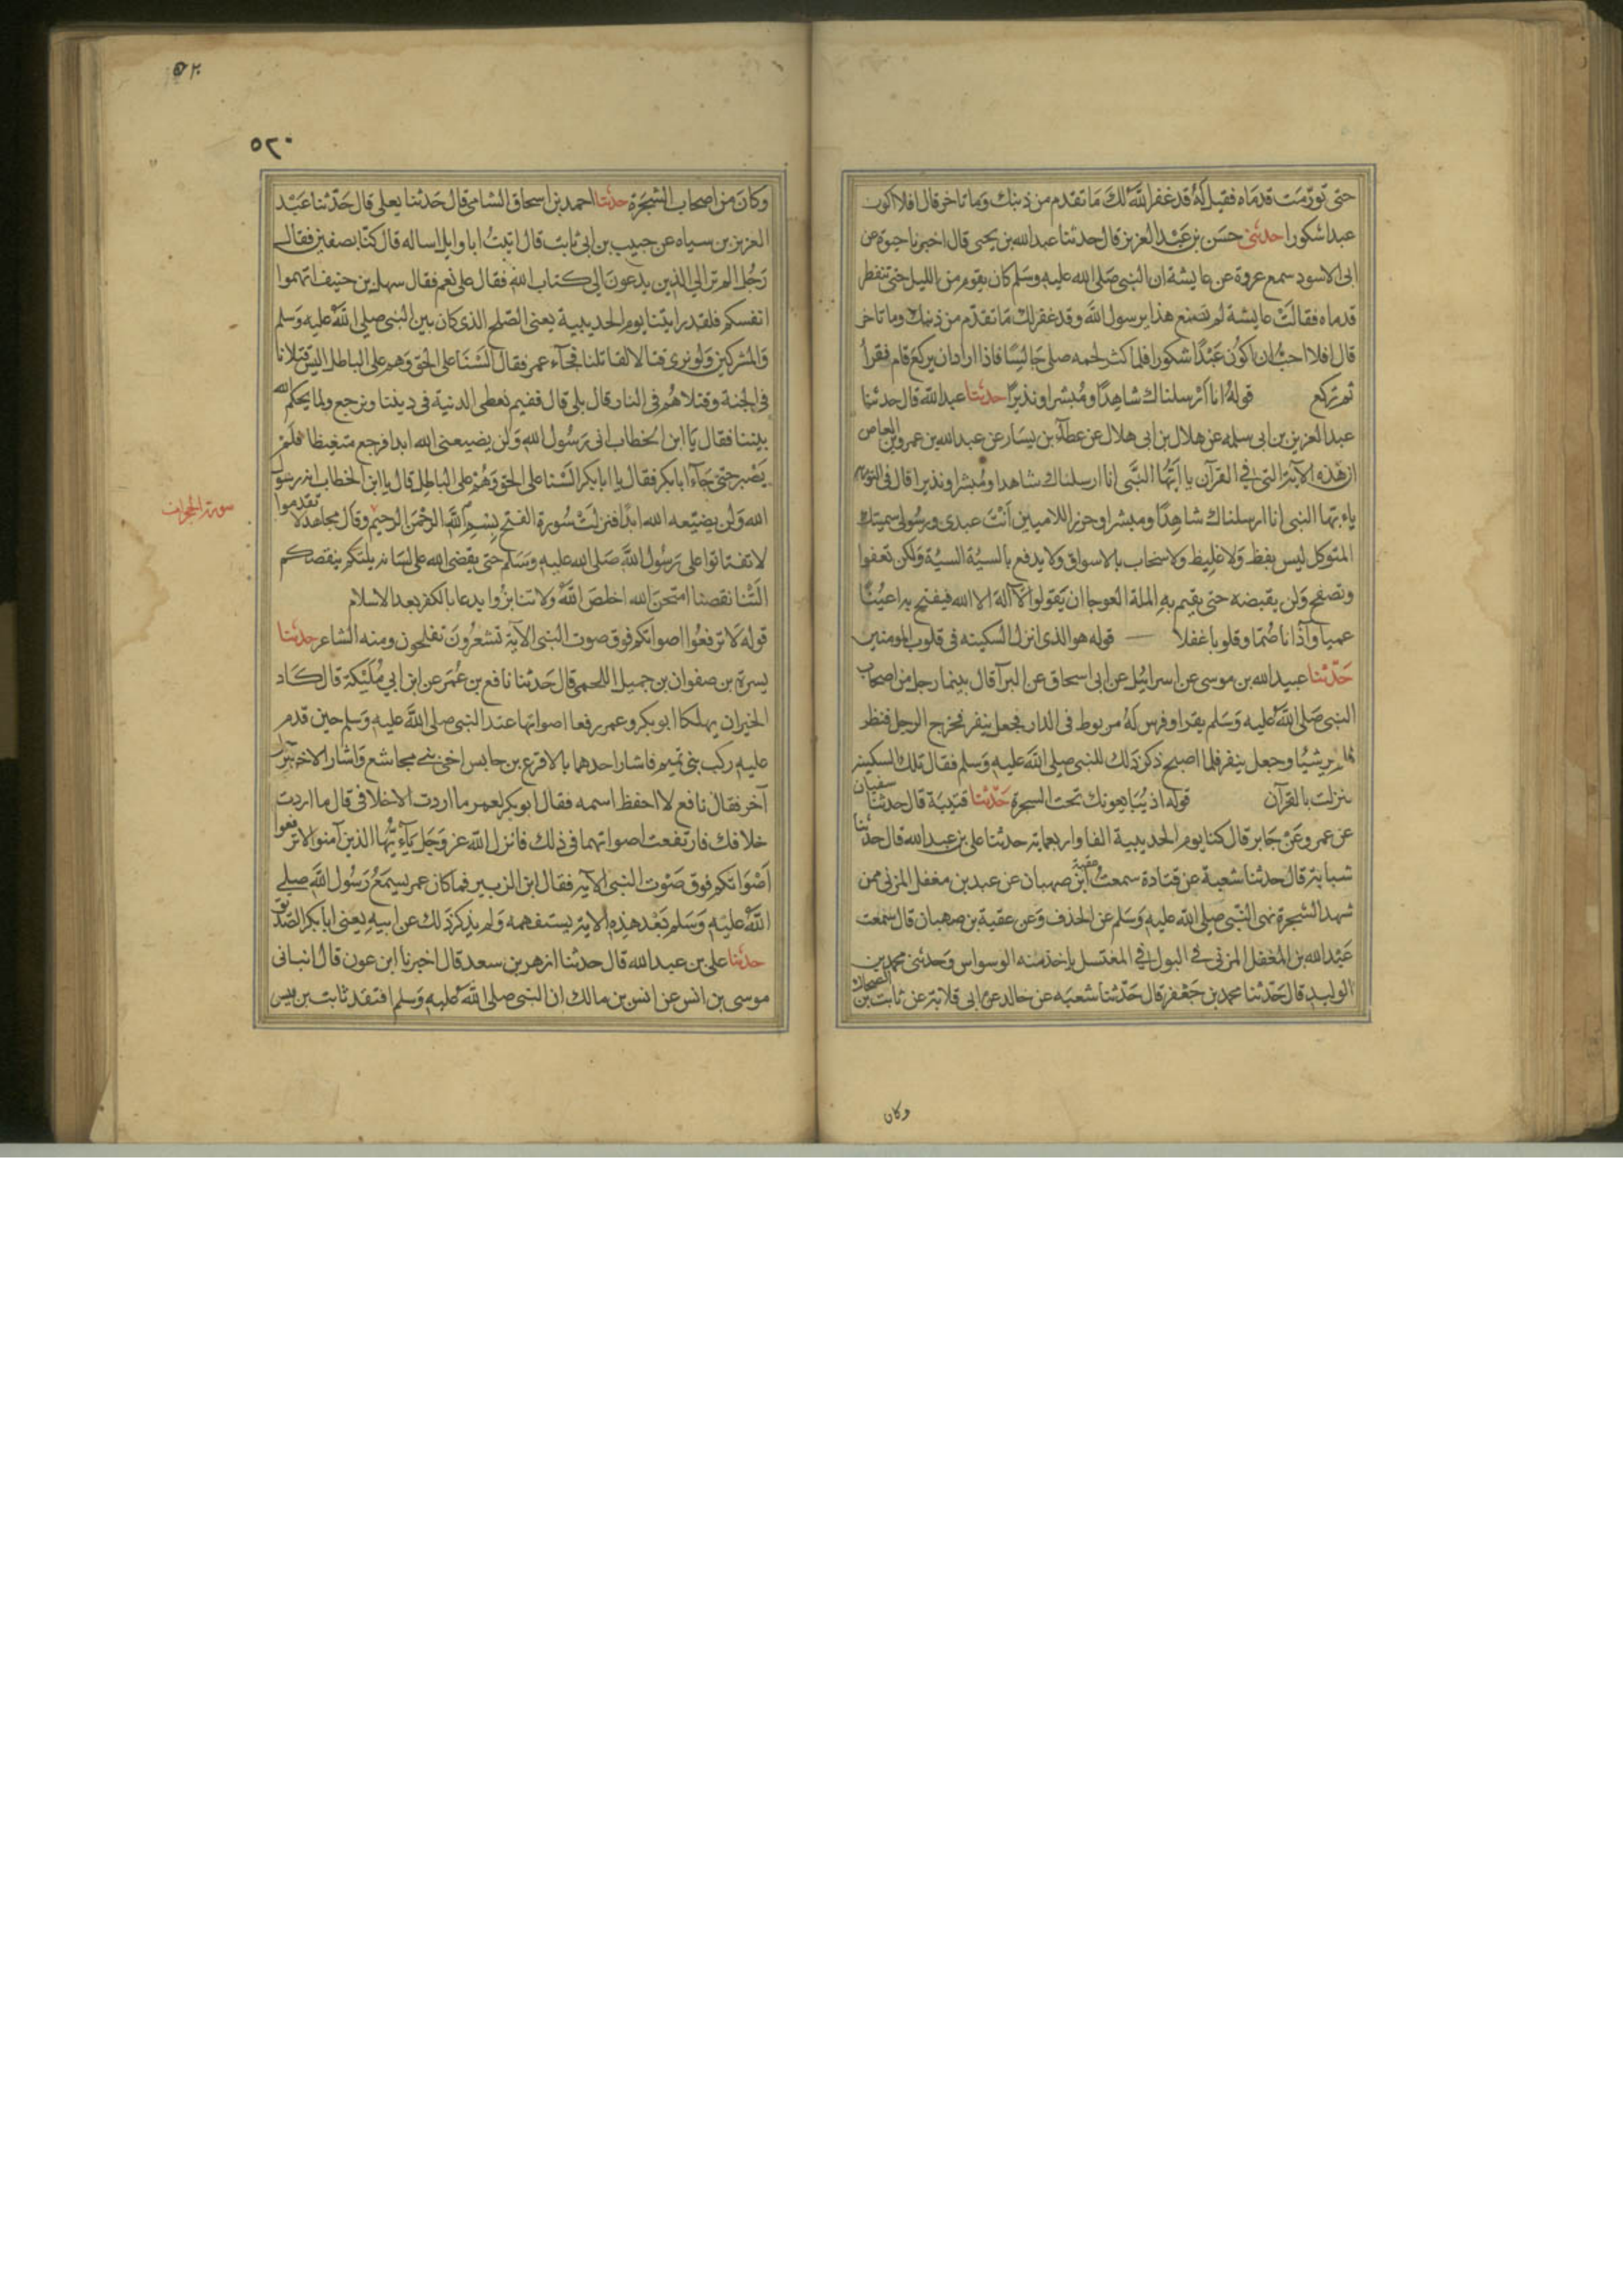 حتى تورمت قدماه فقيل له قد غفر الله لك ما تقدم من ذنبك وما تاخر قال افلا اكون
عبدا شكورا حدثنى حسن بن عبد العزيز قال حدثنا عبد الله بن يحيى قال اخبرنا حيوة عن
ابى الاسود سمع عروة عن عايشة ان النبى صلى الله عليه وسلم كان يقوم من الليل حتى تنفطر
قدماه فقالت عايشة لم تصنع هذا يرسول الله وقد غفر لك ما تقدم من ذنبك وما تاخر
قال افلا احب ان اكون عبدا شكورا فلما كثر لحمه صلى جالسا فاذا اراد ان يركع قام فقرأ
ثم ركع قوله انا ارسلناك شاهدا ومبشرا ونذيرا حدثنا عبد الله قال حدثنا
عبد العزيز بن ابى سلمه عن هلال بن ابى هلال عن عطآء بن يسار عن عبد الله بن عمرو بن العاص
ان هذه الآية التى فى القرآن يا ايها النبى انا ارسلناك شاهدا ومبشرا ونذيرا قال فى التورية
ياء يها النبى انا ارسلناك شاهدا ومبشرا وحرزا للاميين أنت عبدى ورسولى سميتك
المتوكل ليس بفظ ولا غليظ ولا سخاب بالاسواق ولا يدفع بالسيئة السيئة ولكن تعفوا
وتصفح ولن يقبضه حتى يقيم به الملة العوجا ان يقولوا لآ اله الا الله فيفتح بها اعينا
عميا وآذانا صما وقلوبا غفلا قوله هو الذى انزل السكينه فى قلوب المومنين
حدثنا عبيد الله بن موسى عن اسرائيل عن ابى اسحاق عن البرآ قال بينما رجل من اصحاب
النبى صلى الله عليه وسلم يقرا وفرس له مربوط فى الدار فجعل ينفر فخرج الرجل فنظر
فلم ير شيئا وجعل ينفر فلما اصبح ذكر ذلك للنبى صلى الله عليه وسلم فقال تلك السكينة
نزلت بالقرآن قوله اذ يبايعونك تحت الشجرة حدثنا قتيبة قال حدثنا سفيان
عن عمرو عن جابر قال كنا يوم الحديبية الفا واربعماية حدثنا على بن عبد الله قال حدثنا
شبابة قال حدثنا شعبة عن قتادة سمعت عقبة ابن صهبان عن عبد بن مغفل المزنى ممن
شهد الشجرة نهى النبى صلى الله عليه وسلم عن الخذف وعن عقبة بن صهبان قال سمعت
عبد الله بن المغفل المزنى فى البول فى المغتسل ياخذ منه الوسواس وحدثنى محمد بن
الوليد قال حدثنا محمد بن جعفر قال حدثنا شعبه عن خالد عن ابى قلابة عن ثابت بن الضحاك
وكان
٥٢٠
٥٢٠
وكان من اصحاب الشجرة حدثنا احمد بن اسحاق الشامى قال حدثنا يعلى قال حدثنا عبد
العزيز بن سياه عن حبيب بن ابى ثابت قال اتيت ابا وايل اساله قال كنا بصفين فقال
رجل الم تر الى الذين يدعون الى كتاب الله فقال على نعم فقال سهل بن حنيف اتهموا
انفسكم فلقد رايتنا يوم الحديبية يعنى الصلح الذى كان بين النبى صلى الله عليه وسلم
والمشركين ولو نرى قتالا لقاتلنا فجآء عمر فقال السنا على الحق وهم على الباطل اليس قتلانا
فى الجنة وقتلاهم فى النار قال بلى قال ففيم نعطى الدنية فى ديننا ونرجع ولما يحكم الله
بيننا فقال يا ابن الخطاب انى رسول الله ولن يضيعنى الله ابدا فرجع متغيظا فلم
يصبر حتى جآء ابا بكر فقال يا ابا بكر السنا على الحق وهم على الباطل قال يا ابن الخطاب انه رسول
الله ولن يضيعه الله ابدا فنزلت سورة الفتح بسم الله الرحمن الرحيم وقال مجاهد لا تقدموا
سورة الحجرات
لا تفتاتوا على رسول الله صلى الله عليه وسلم حتى يقضى الله على لسانه يلتكم ينقصكم
التنا نقصنا امتحن الله اخلص الله ولا تنابزوا يدعا بالكفر بعد الاسلام
قوله لا ترفعوا اصواتكم فوق صوت النبى الآية تشعرون تعلمون ومنه الشاعر حدثنا
يسرة بن صفوان بن جميل اللخمى قال حدثنا نافع بن عمر عن ابن ابي مليكة قال كاد
الخيران يهلكا ابو بكر وعمر رفعا اصواتهما عند النبى صلى الله عليه وسلم حين قدم
عليه ركب بنى تميم فاشار احدهما بالاقرع بن حابس اخى بنى مجاشع واشار الاخر برجل
آخر فقال نافع لا احفظ اسمه فقال ابو بكر لعمر ما اردت الا خلافى قال ما اردت
خلافك فارتفعت اصواتهما فى ذلك فانزل الله عز وجل يآء يها الذين آمنوا لا ترفعوا
اصواتكم فوق صوت النبى الآية فقال ابن الزبير فما كان عمر يسمع رسول الله صلى
الله عليه وسلم بعد هذه الاية يستفهمه ولم يذكر ذلك عن ابيه يعنى ابا بكر الصديق
حدثنا على بن عبد الله قال حدثنا ازهر بن سعد قال اخبرنا ابن عون قال انبانى
موسى بن انس عن انس بن مالك ان النبى صلى الله عليه وسلم افتقد ثابت بن قيس